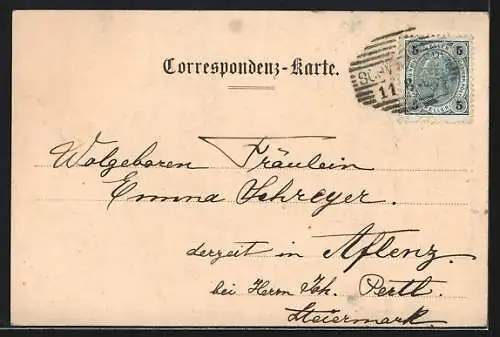 Correspondenz-Karte.
5 5
5 5
11
Wolgeboren Fräulein
Emma Schreyer.
derzeit in Aflenz.
bei Herrn Joh. Pertl.
Steiermark.